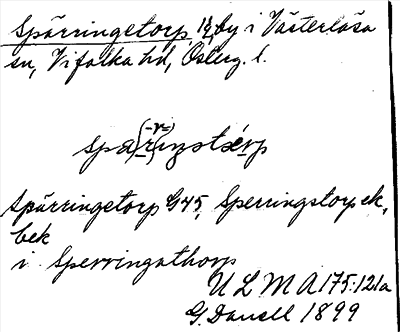 Spärringetorp, by i Västerlösa
sn, Vifolka hd, Österg. l.
(-r=)
Spärringetorp G45, Sperringstorp ek,
bek
i Sperringathorp
ULMA 175:121a
G. Danell 1899